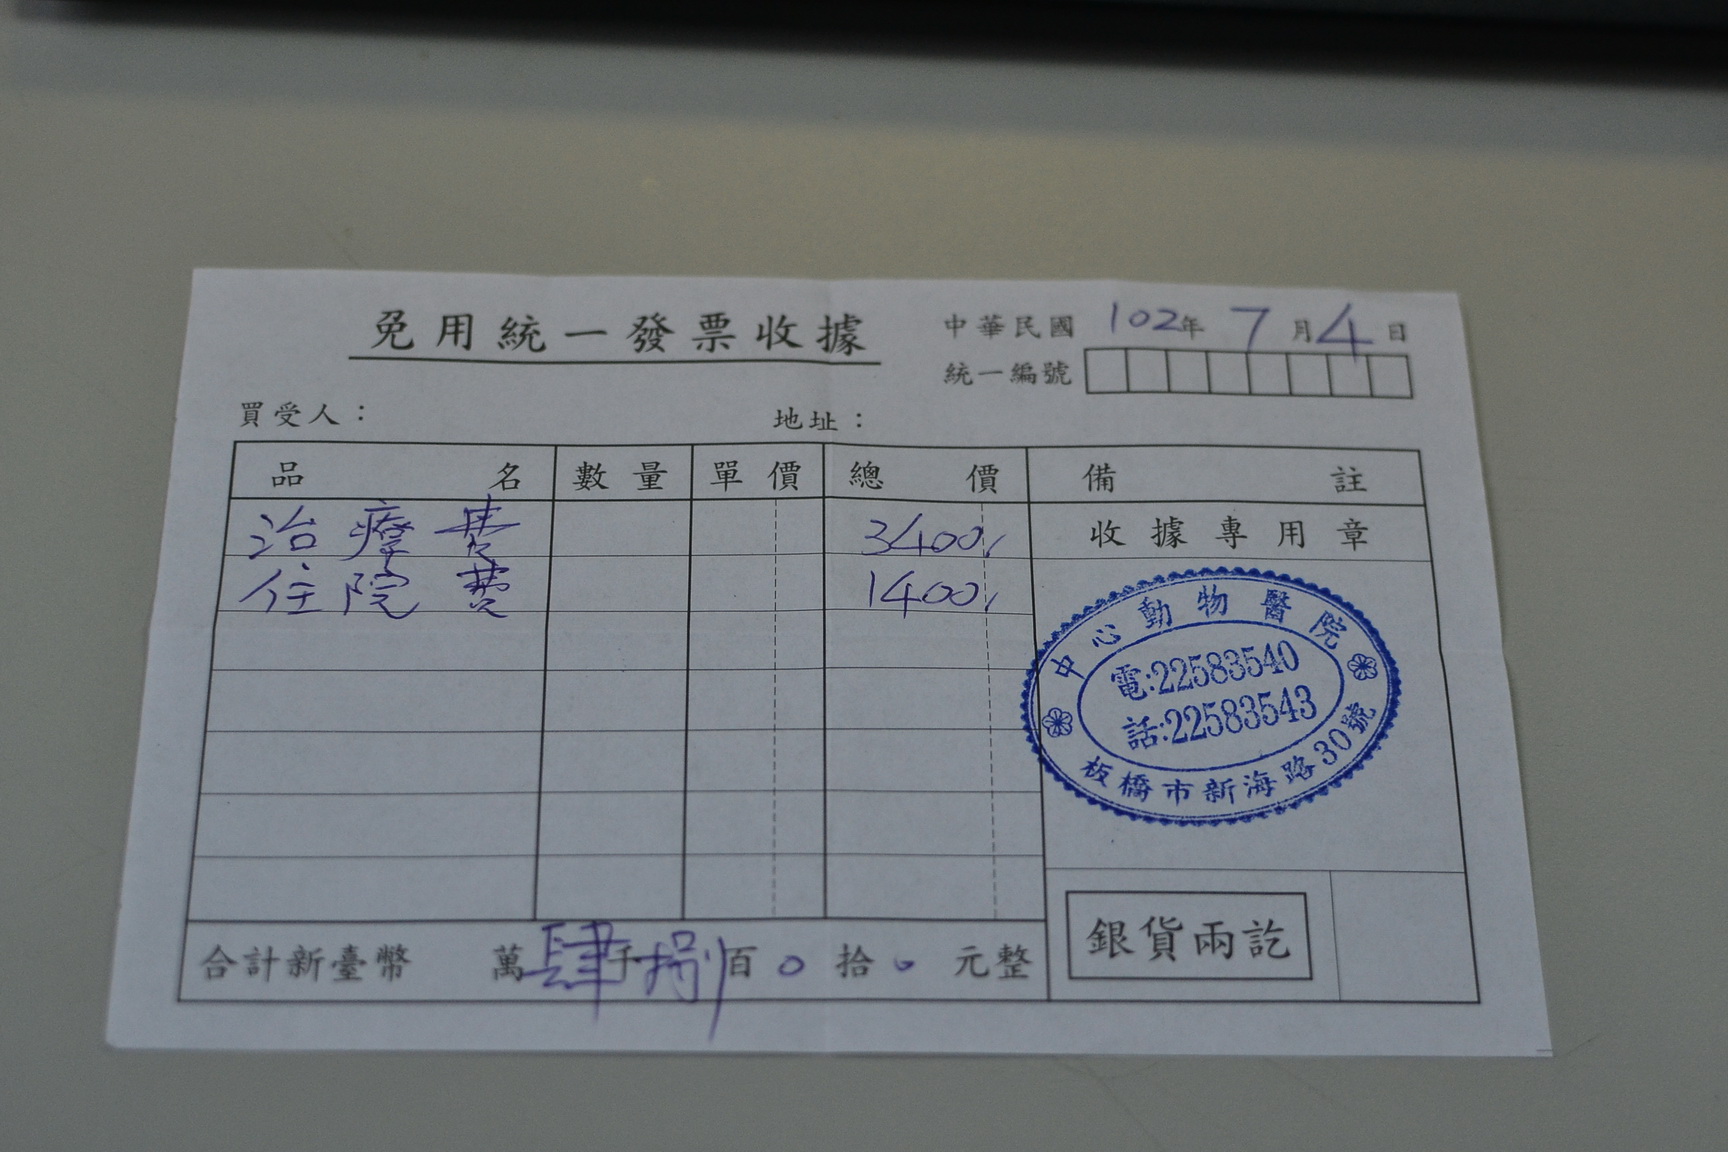 免用統一發票收據
中華民國102年7月4日
統一編號
買受人：
地址：
品名 數量 單價 總價 備註
治療費 3400
收據專用章
住院費 1400
中心動物醫院
電:22583540
話:22583543
板橋市新海路30號
合計新臺幣 萬肆千捌百0拾0元整
銀貨兩訖